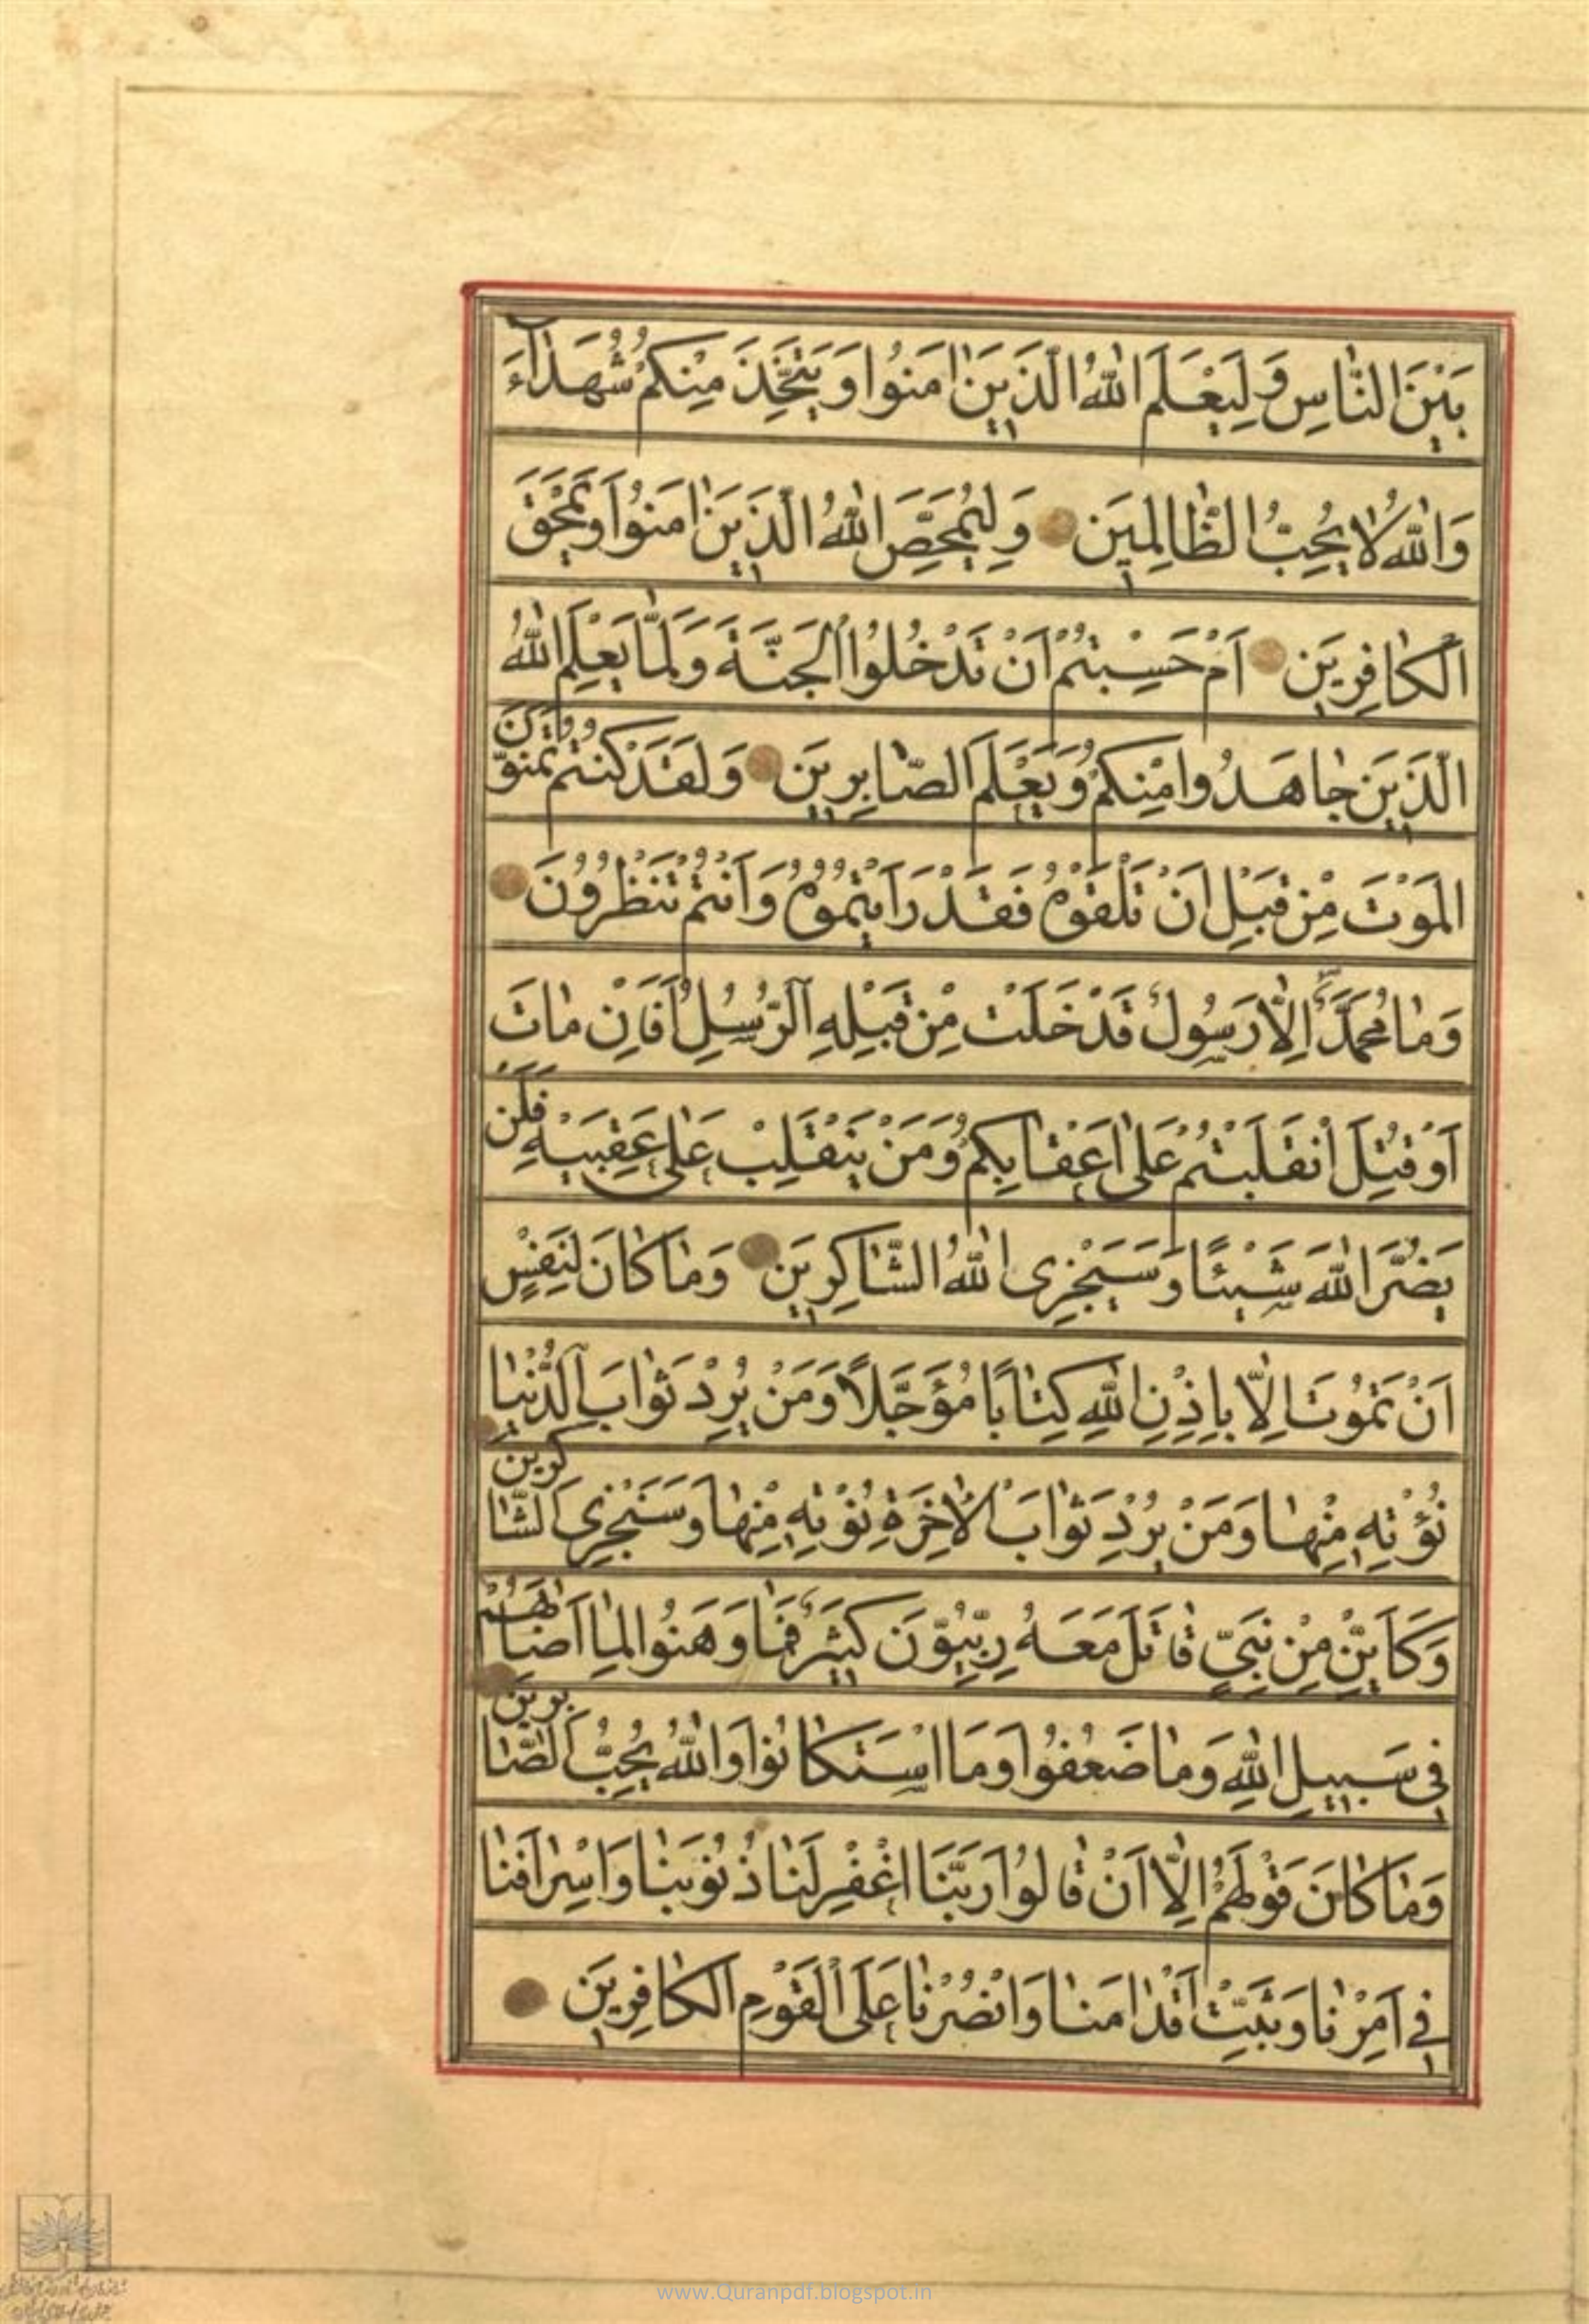 بَيْنَ النّٰاسِ وَلِيَعْلَمَ اللّٰهُ الَّذَينَ اٰمَنُوا وَيَتَّخِذَ مِنِكُمْ شُهَدٰآءَ
وَاللّٰهُ لٰا يُحِبُّ الظّٰالِمِيَن وَلِيُمَحِّصَ اللّٰهُ الَّذَينَ اٰمَنُوا وَيَمْحَقَ
الْكٰافِرِيَن اَمْ حَسِبْتُمْ اَنْ تَدْخُلُوا الْجَنَّةَ وَلَمّٰا يَعْلَمِ اللّٰهُ
الَّذَينَ جٰاهَدُوا مِنْكُمْ وَيَعْلَمَ الصّٰابِرِيَن وَلَقَدْ كُنْتُمْ تَمَنَّوْنَ
الْمَوْتَ مِنْ قَبْلِ اَنْ تَلْقَوْهُ فَقَدْ رَاَيْتُمُوُهُ وَاَنْتُمْ تَنْظُرُونَ
وَمٰا مُحَمَّدٌ اِلّٰا رَسُولٌ قَدْ خَلَتْ مِنْ قَبْلِهِ الرُّسُلُ اَفَاِنْ مٰاتَ
اَوْ قُتِلَ انْقَلَبْتُمْ عَلٰى اَعْقٰابِكُمْ وَمَنْ يَنْقَلِبْ عَلٰى عَقِبَيْهِ فَلَنْ
يَضُرَّ اللّٰهَ شَيْئًا وَسَيَجْزِى اللّٰهُ الشّٰاكِرِيَن وَمٰا كٰانَ لِنَفْسٍ
اَنْ تَمُوتَ اِلّٰا بِاِذْنِ اللّٰهِ كِتٰابًا مُؤَجَّلًا وَمَنْ يُرِدْ ثَوٰابَ الدُّنْيٰا
نُؤْتِهِ مِنْهٰا وَمَنْ يُرِدْ ثَوٰابَ الْاٰخِرَةِ نُؤْتِهِ مِنْهٰا وَسَنَجْزِى الشّٰاكِرينَ
وَكَاَيِّنْ مِنْ نَبِىٍّ قٰاتَلَ مَعَهُ رِبِّيُّونَ كَثيرٌ فَمٰا وَهَنُوا لِمٰا اَصٰابَهُمْ
فى سَبيلِ اللّٰهِ وَمٰا ضَعُفُوا وَمَا اسْتَكٰانُوا وَاللّٰهُ يُحِبُّ الصّٰابِرينَ
وَمٰا كٰانَ قَوْلَهُمْ اِلّٰا اَنْ قٰالُوا رَبَّنَا اغْفِرْ لَنٰا ذُنُوبَنٰا وَاِسْرٰافَنٰا
فى اَمْرِنٰا وَثَبِّتْ اَقْدٰامَنٰا وَانْصُرْنٰا عَلَى الْقَوْمِ الْكٰافِرِيَن
www.Quranpdf.blogspot.in